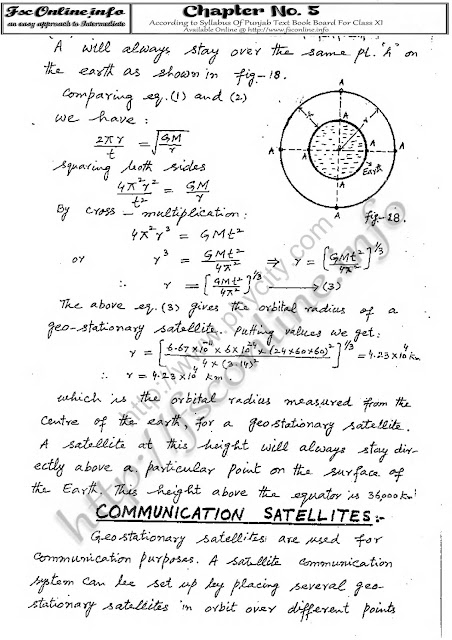 Fsc Online.info
an easy approach to Intermediate
Chapter No. 5
According to Syllabus Of Punjab Text Book Board For Class XI
Available Online @ http://www.fsconline.info
A will always stay over the same pt. "A" on
the earth as shown in fig-18.
Comparing eq.(1) and (2)
we have:
2πr/t = √(GM/r)
squaring both sides
4π²r²/t² = GM/r
By cross-multiplication:
4π²r³ = GMt²
or r³ = GMt²/4π² ⇒ r = [GMt²/4π²]^1/3
∴ r = [GMt²/4π²]^1/3 ⟶ (3)
A
A
A
A
A
A
r
Earth
fig-18.
The above eq.(3) gives the orbital radius of a
geo-stationary satellite. Putting values we get:
r = [6.67×10^-11 × 6×10^24 × (24×60×60)² / 4×(3.14)²]^1/3 = 4.23×10^4 km
∴ r = 4.23×10^4 km
which is the orbital radius measured from the
centre of the earth, for a geostationary satellite.
A satellite at this height will always stay dir-
ectly above a particular point on the surface of
the Earth. This height above the equator is 36,000km
COMMUNICATION SATELLITES:-
Geostationary satellites are used for
communication purposes. A satellite communication
system can be set up by placing several geo-
stationary satellites in orbit over different points
http://fsconline.info